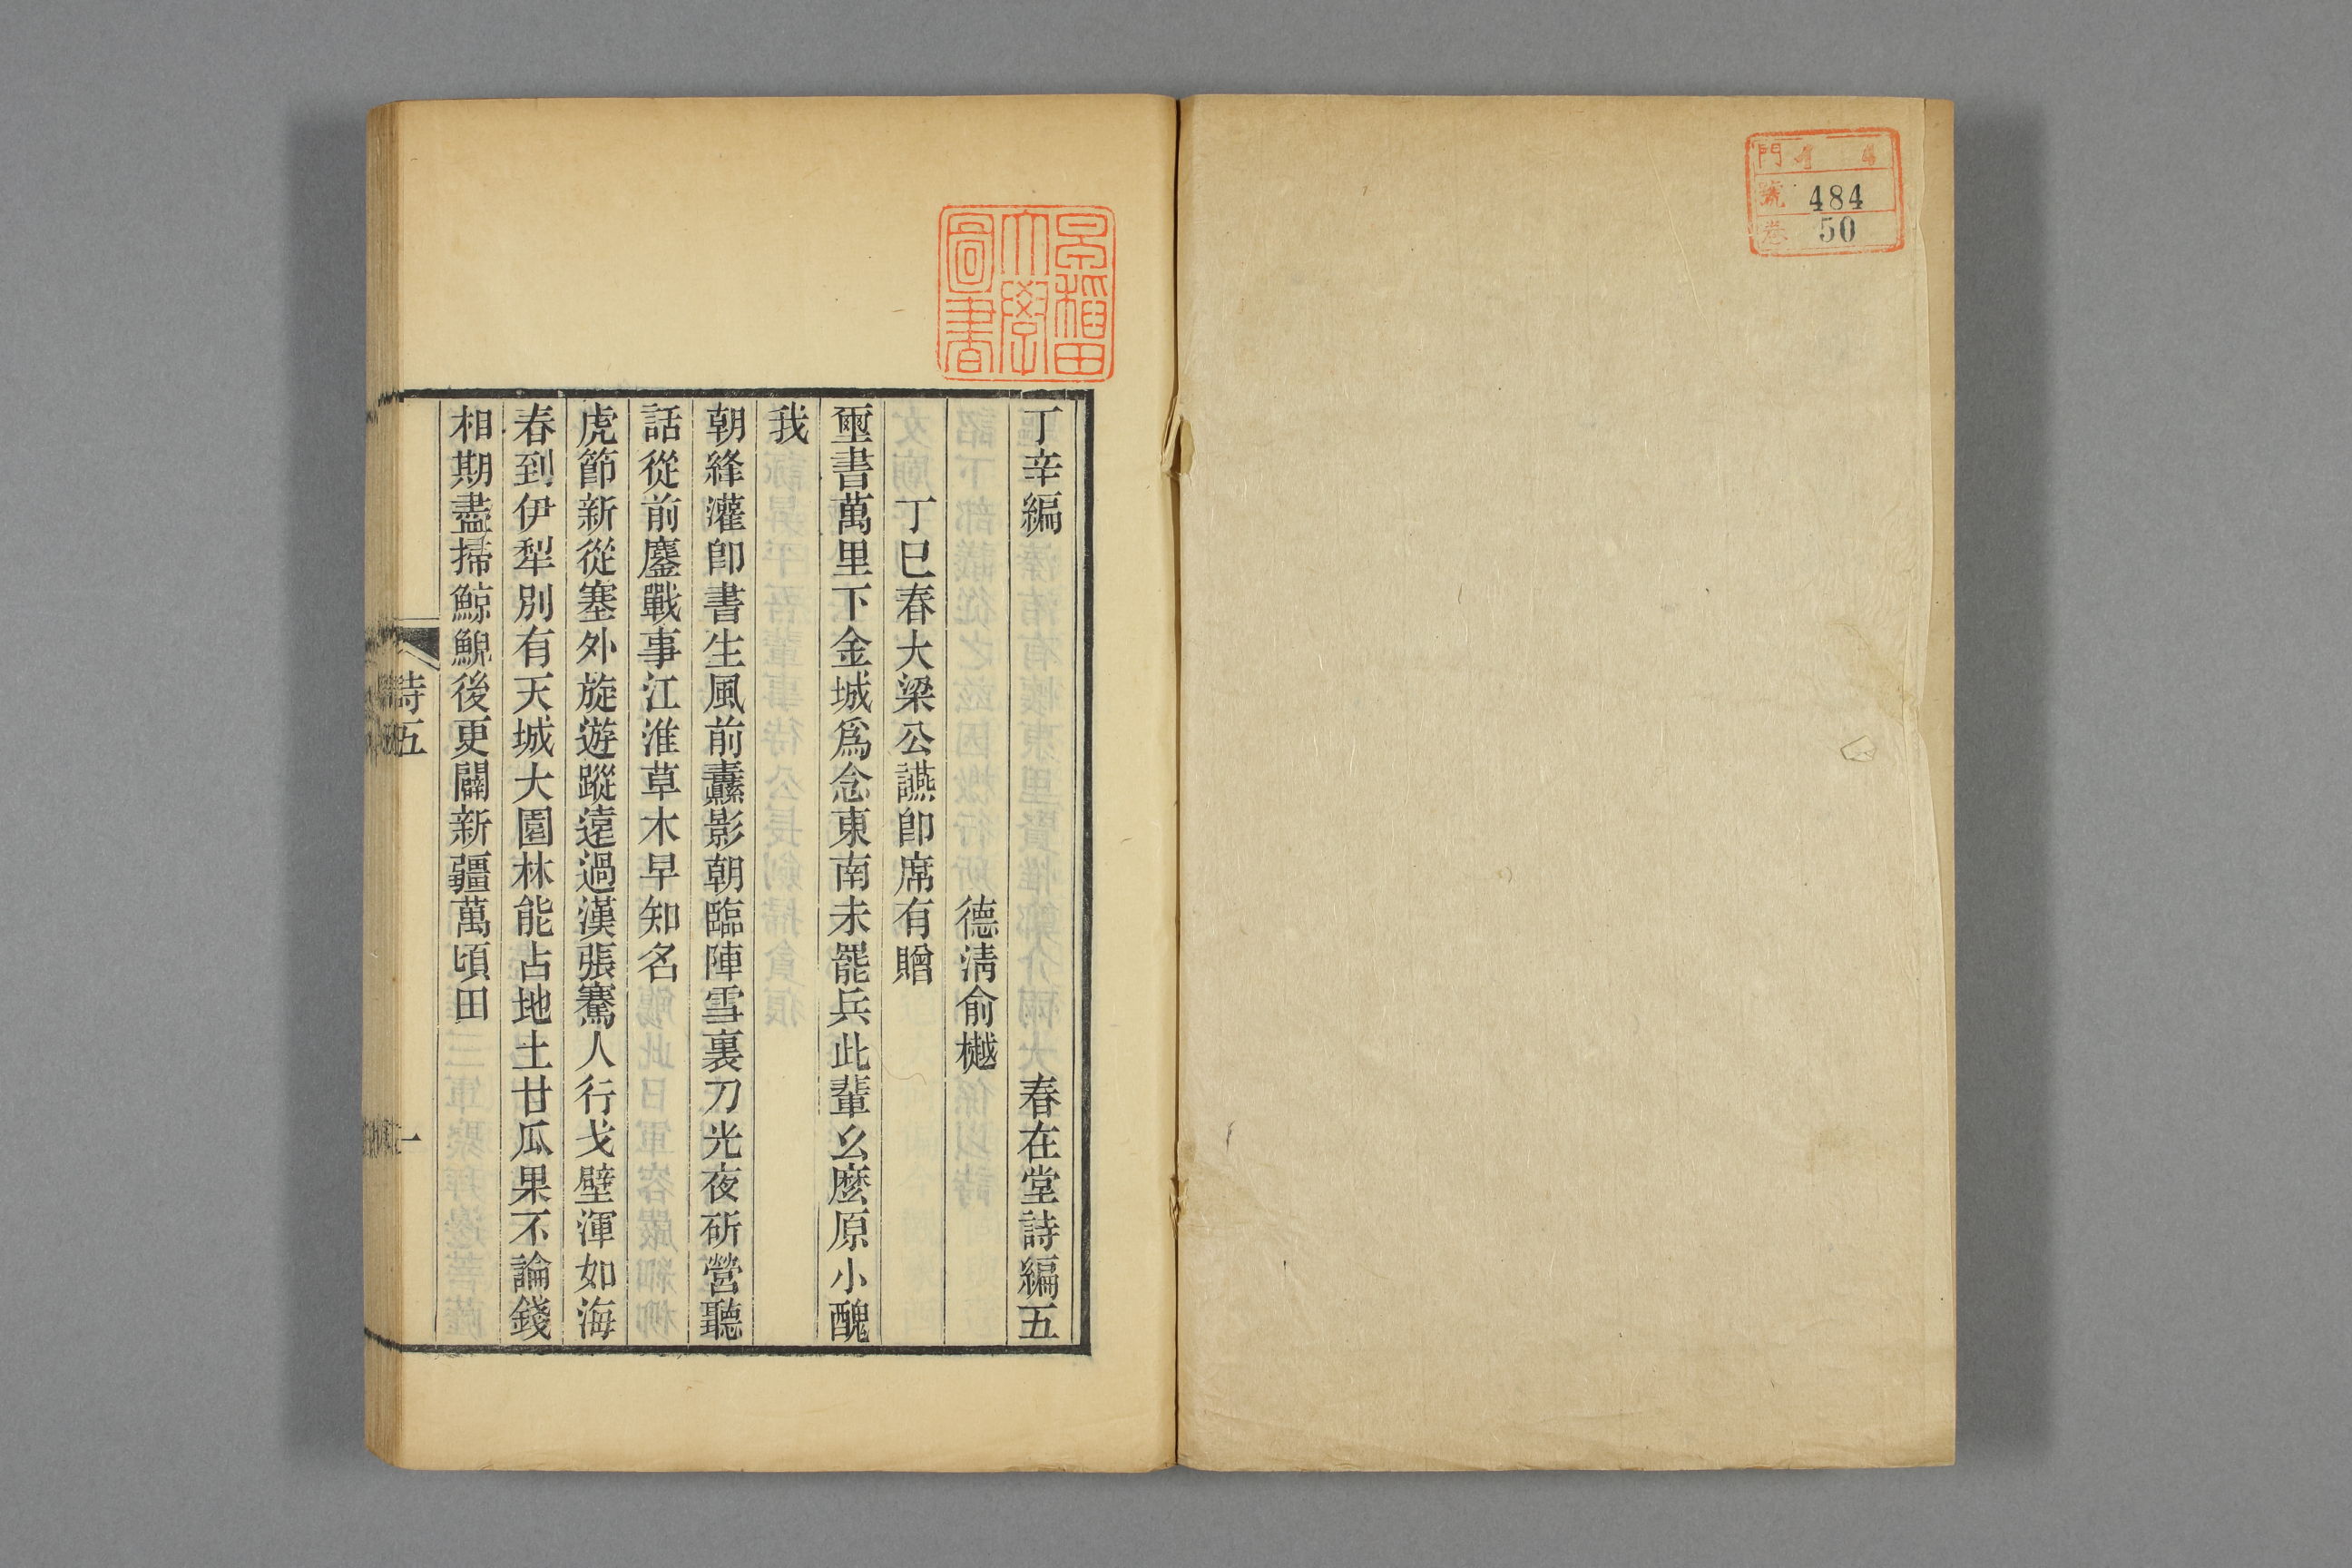 門 イ 4
號 484
卷 50
早稻田
大學
圖書
丁辛編 春在堂詩編五
德淸俞樾
丁巳春大梁公讌卽席有贈
璽書萬里下金城爲念東南未罷兵此輩幺麼原小醜
我
朝絳灌卽書生風前纛影朝臨陣雪裏刀光夜斫營聽
話從前鏖戰事江淮草木早知名
虎節新從塞外旋遊蹤遠過漢張騫人行戈壁渾如海
春到伊犁別有天城大園林能占地土甘瓜果不論錢
相期盡掃鯨鯢後更闢新疆萬頃田
詩五
一